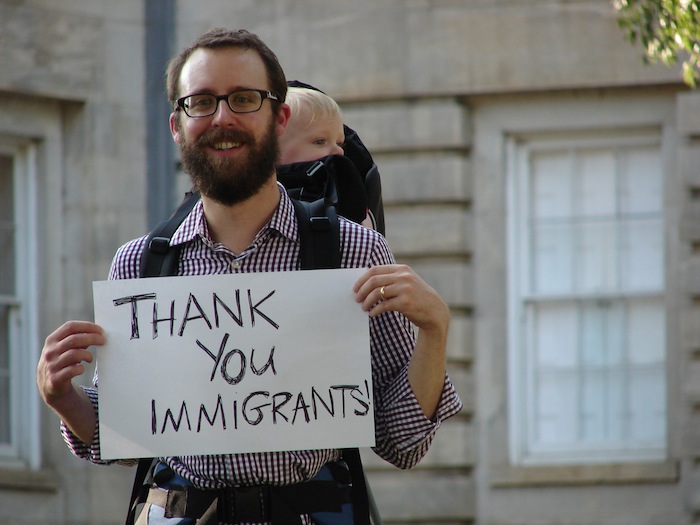 THANK
YOU
IMMIGRANTS!